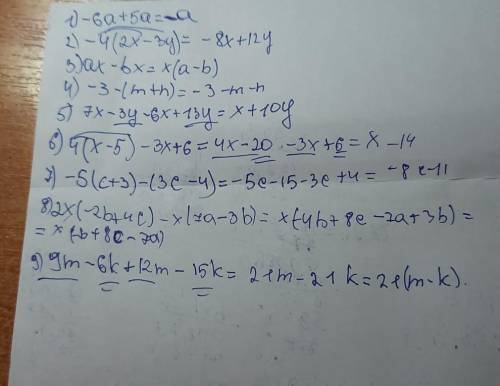 1) -6a+5a=-a
2) -4(2x-3y)= -8x+12y
3) ax-bx=x(a-b)
4) -3-(m+n)=-3-m-n
5) 7x-3y-6x+13y=x+10y
6) 4(x-5)-3x+6=4x-20-3x+6=x-14
7) -5(c+3)-(3c-4)=-5c-15-3c+4=-8c-11
8) 2x(-2b+4c)-x(7a-3b)=x(-4b+8c-7a+3b)=
=x(-b+8c-7a)
9) 9m-6k+12m-15k=21m-21k=21(m-k).